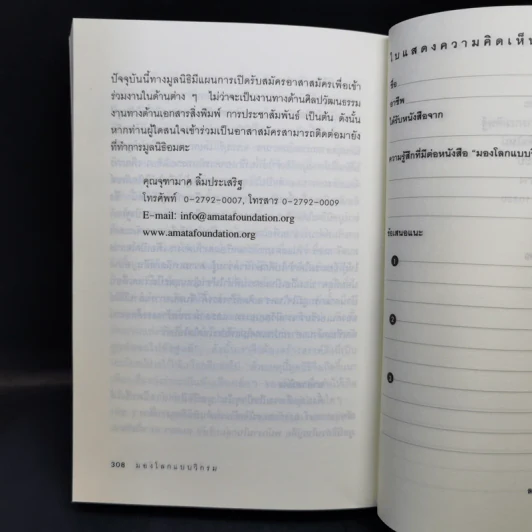 ปัจจุบันนี้ทางมูลนิธิมีแผนการเปิดรับสมัครอาสาสมัครเพื่อเข้า
ร่วมงานในด้านต่าง ๆ ไม่ว่าจะเป็นงานทางด้านศิลปวัฒนธรรม
งานทางด้านเอกสารสิ่งพิมพ์ การประชาสัมพันธ์ เป็นต้น ดังนั้น
หากท่านผู้ใดสนใจเข้าร่วมเป็นอาสาสมัครสามารถติดต่อมายัง
ที่ทำการมูลนิธิอมตะ
คุณจุฑามาศ ลิ้มประเสริฐ
โทรศัพท์ 0-2792-0007, โทรสาร 0-2792-0009
E-mail: info@amatafoundation.org
www.amatafoundation.org
308 มองโลกแบบวิกรม
ใบแสดงความคิดเห็น
ชื่อ
อาชีพ
ได้รับหนังสือจาก
ความรู้สึกที่มีต่อหนังสือ "มองโลกแบบ
ข้อเสนอแนะ
1
2
3